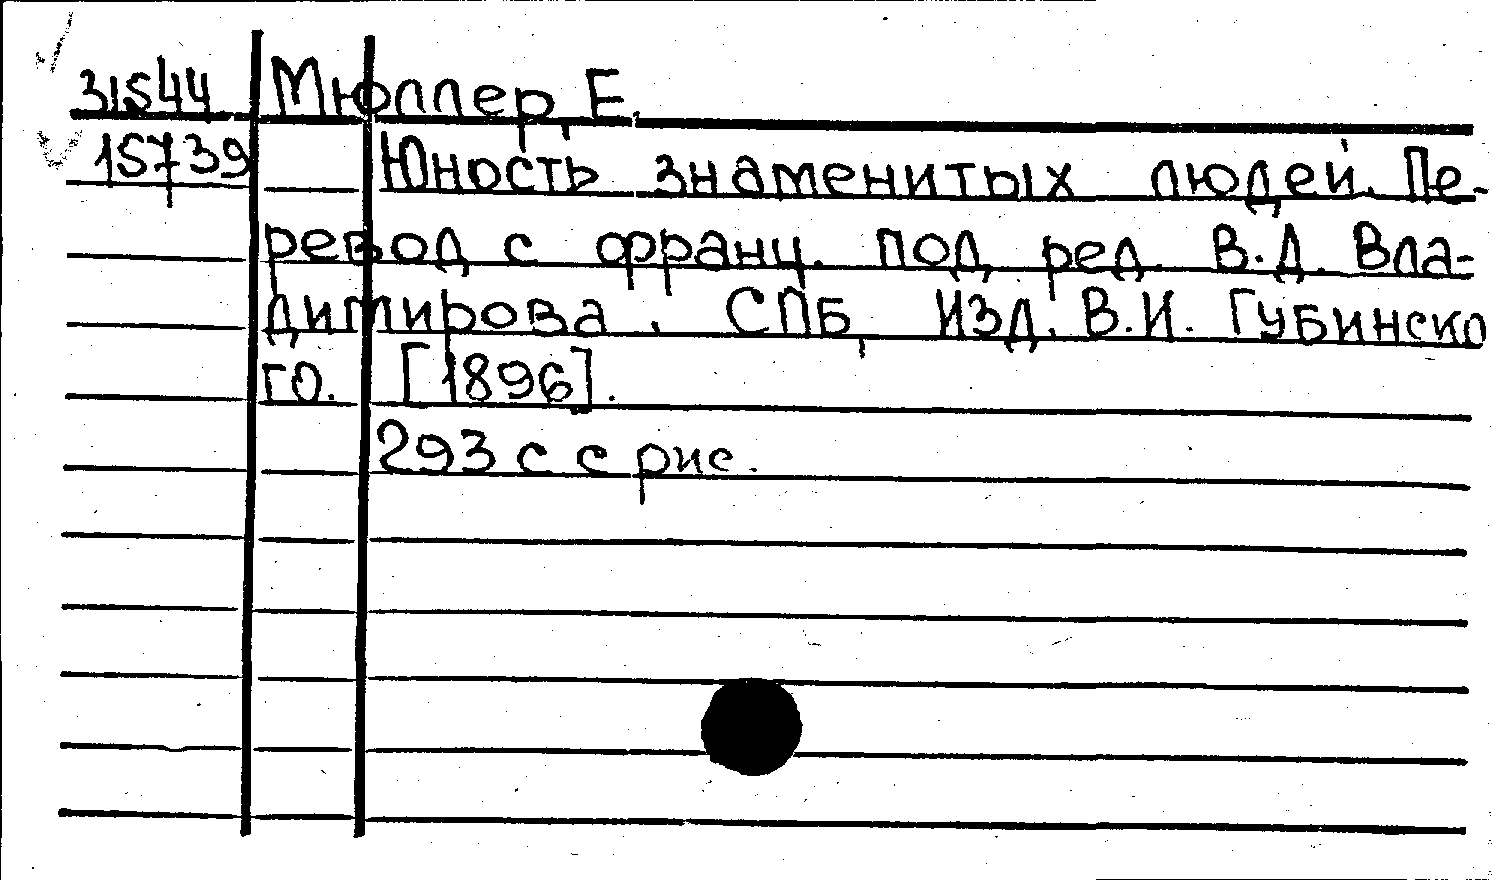 31544 Мюллер, Е.
15739 Юность знаменитых людей. Пе-
ревод с франц. под ред. В.Д. Вла-
димирова. СПБ, Изд. В.И. Губинско
го. [1896].
293 с с рис.